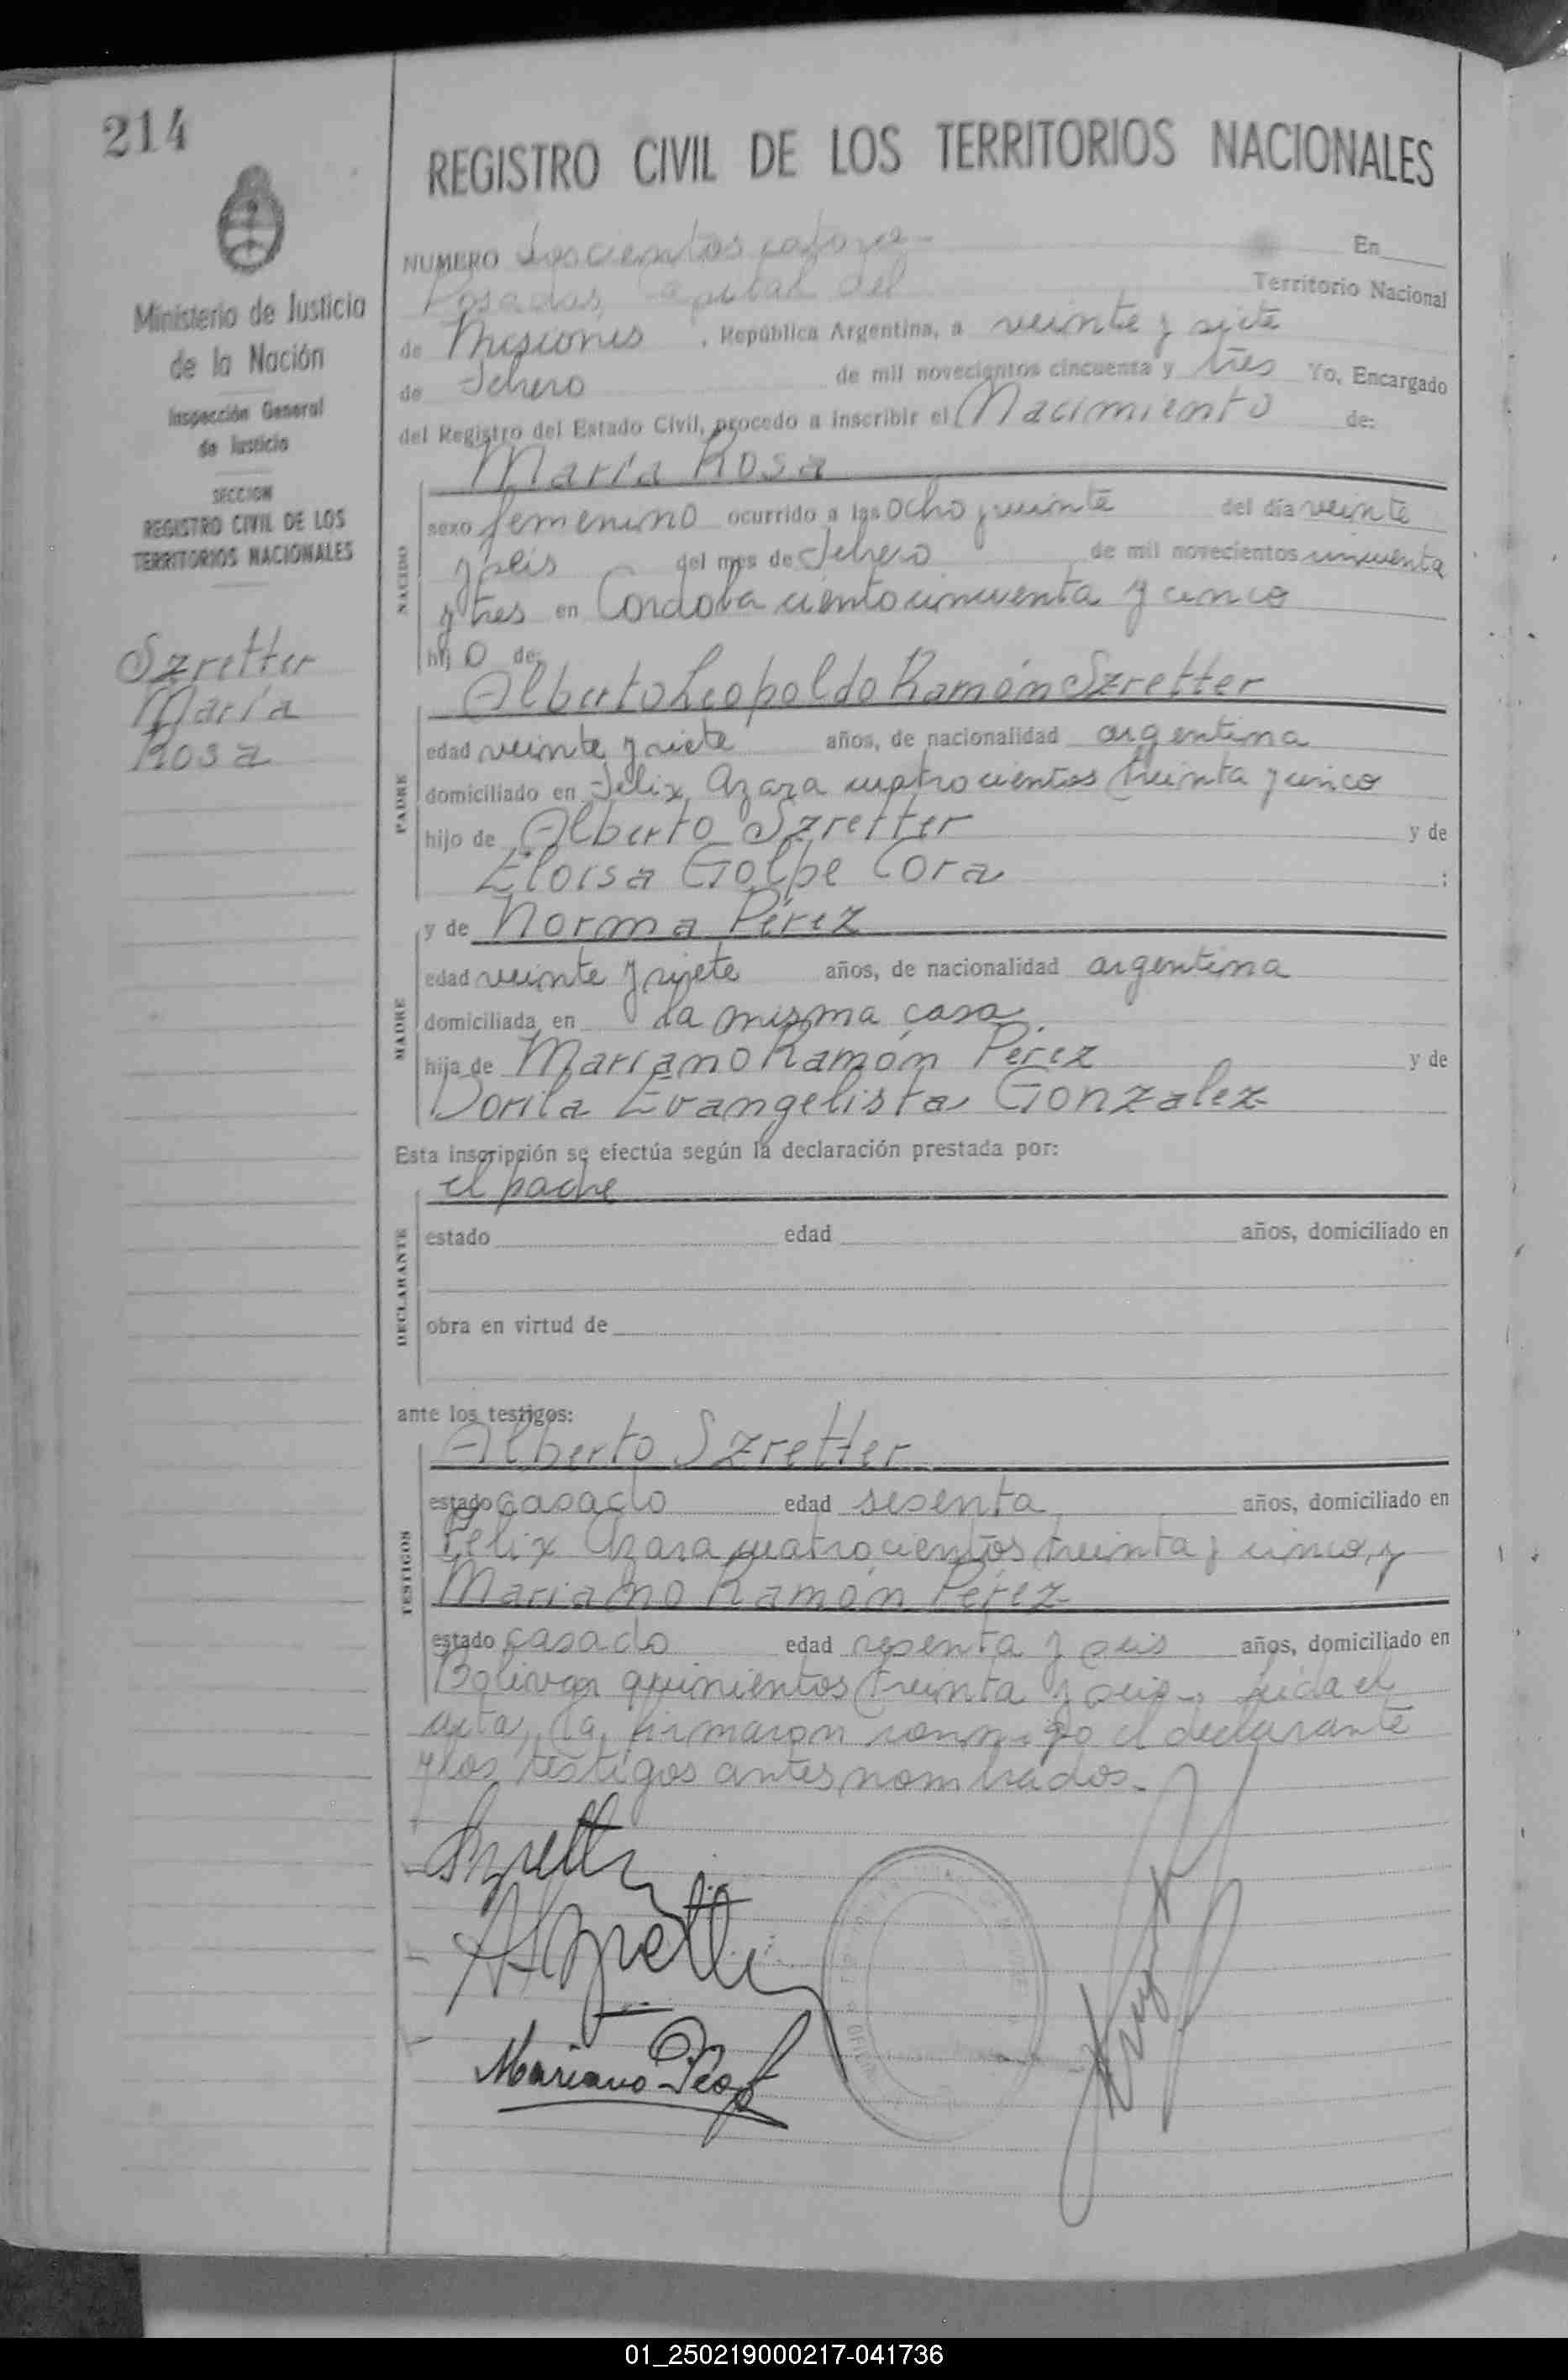 214
REGISTRO CIVIL DE LOS TERRITORIOS NACIONALES
Ministerio de Justicia
de la Nación
Inspección General
de Justicia
SECCION
REGISTRO CIVIL DE LOS
TERRITORIOS NACIONALES
Szretter
María
Rosa
NUMERO doscientos catorce- En
Posadas, Capital del Territorio Nacional
de Misiones, República Argentina, a veinte y siete
de Febrero de mil novecientos cincuenta y tres Yo, Encargado
del Registro del Estado Civil, procedo a inscribir el Nacimiento de:
María Rosa
NACIDO
sexo femenino ocurrido a las ocho y veinte del día veinte
y seis del mes de Febrero de mil novecientos cincuenta
y tres en Córdoba ciento cincuenta y cinco
hij o de:
Alberto Leopoldo Ramón Szretter
PADRE
edad veinte y siete años, de nacionalidad argentina
domiciliado en Félix Azara cuatrocientos treinta y cinco
hijo de Alberto Szretter y de
Eloisa Golpe Cora ;
y de Norma Pérez
MADRE
edad veinte y siete años, de nacionalidad argentina
domiciliada en la misma casa
hija de Mariano Ramón Pérez y de
Dorila Evangelista Gonzalez
Esta inscripción se efectúa según la declaración prestada por:
el padre
DECLARANTE
estado edad años, domiciliado en
obra en virtud de
ante los testigos:
Alberto Szretter
TESTIGOS
estado casado edad sesenta años, domiciliado en
Félix Azara cuatrocientos treinta y cinco, y
Mariano Ramón Pérez
estado casado edad sesenta y seis años, domiciliado en
Bolívar quinientos treinta y seis-, leída el
acta, la firmaron conmigo el declarante
y los testigos antes nombrados.-
Szretter
A Szretter
Mariano
01_250219000217-041736